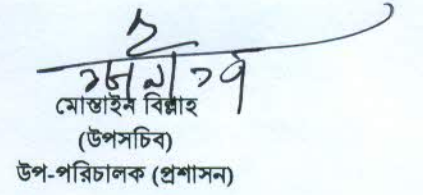 মোস্তাইন বিল্লাহ
(উপসচিব)
উপ-পরিচালক (প্রশাসন)